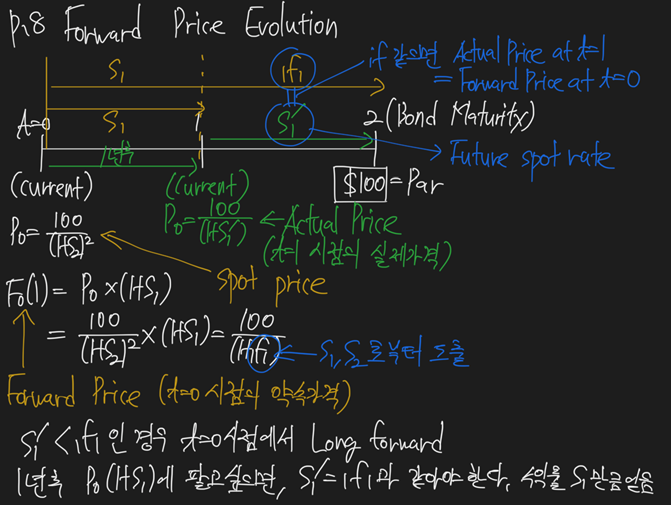 p.8 Forward Price Evolution
S₁ ₁f₁ if 같으면 Actual Price at t=1
= Forward Price at t=0
t=0 S₁ 1 S₁′ 2 (Bond Maturity)
1년후 Future spot rate
(Current) (Current) $100 = Par
P₀ = 100/(1+S₂)² P₀ = 100/(1+S₁′) ← Actual Price
(t=1 시점의 실제가격)
spot price
F₀(1) = P₀ × (1+S₁)
= 100/(1+S₂)² × (1+S₁) = 100/(1+₁f₁) ← S₁, S₂ 로부터 도출
Forward Price (t=0 시점의 약속가격)
S₁′ < ₁f₁ 인 경우 t=0시점에서 Long forward
1년후 P₀(1+S₁)에 팔고싶으면, S₁′ = ₁f₁과 같아야 한다, 수익율 S₁ 만큼얻음